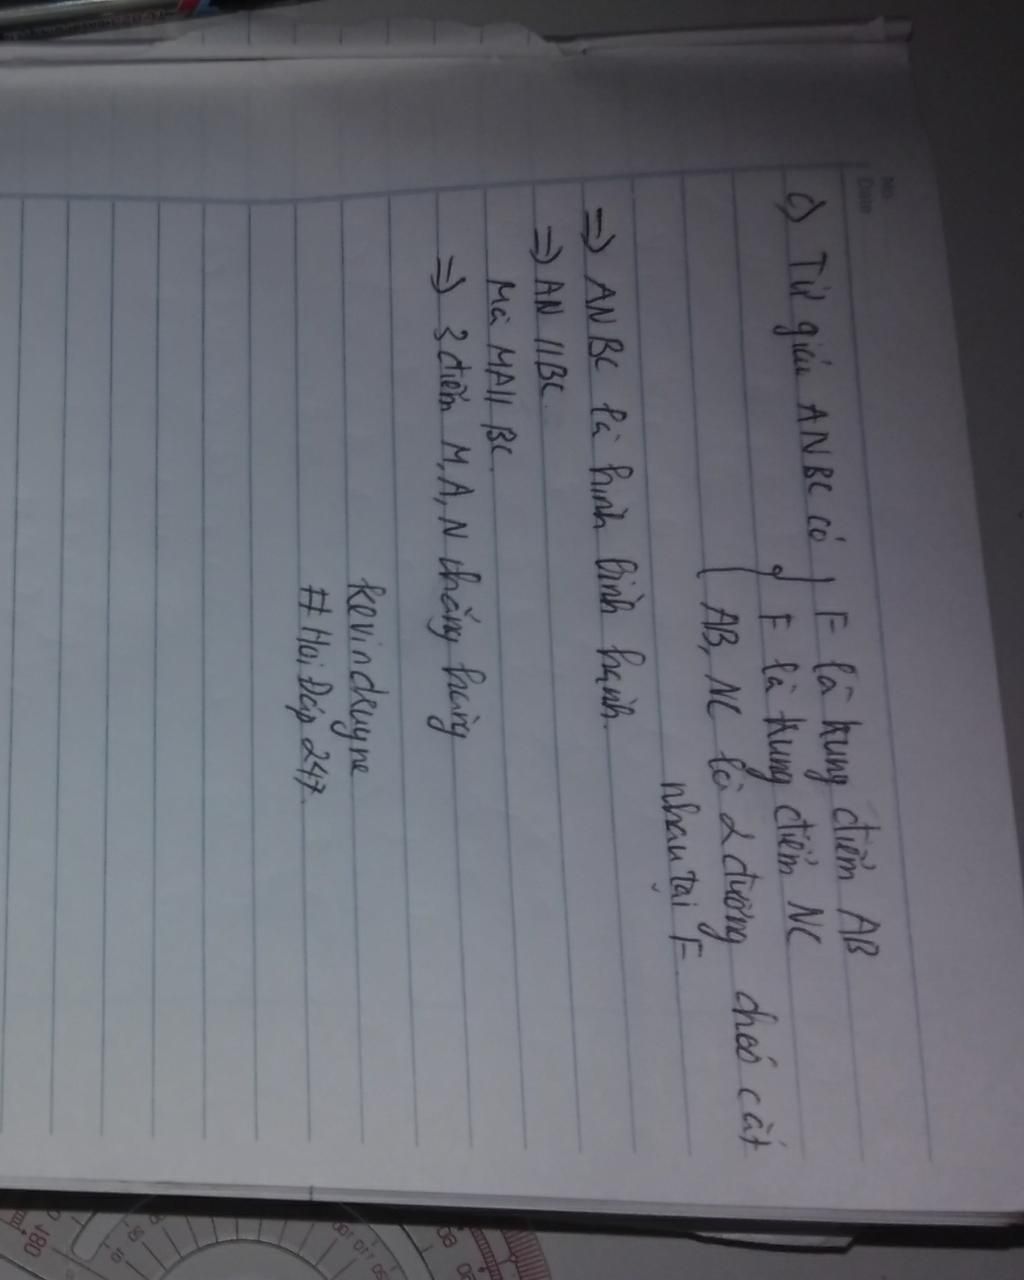 No
Date
c) Tứ giác ANBC có { F là trung điểm AB
F là trung điểm NC
AB, NC là 2 đường chéo cắt
nhau tại F.
=) ANBC là hình bình hành.
=) AN // BC.
Mà MA // BC.
=) 3 điểm M, A, N thẳng hàng
kevindeuyne
# Hoi Đáp 247.